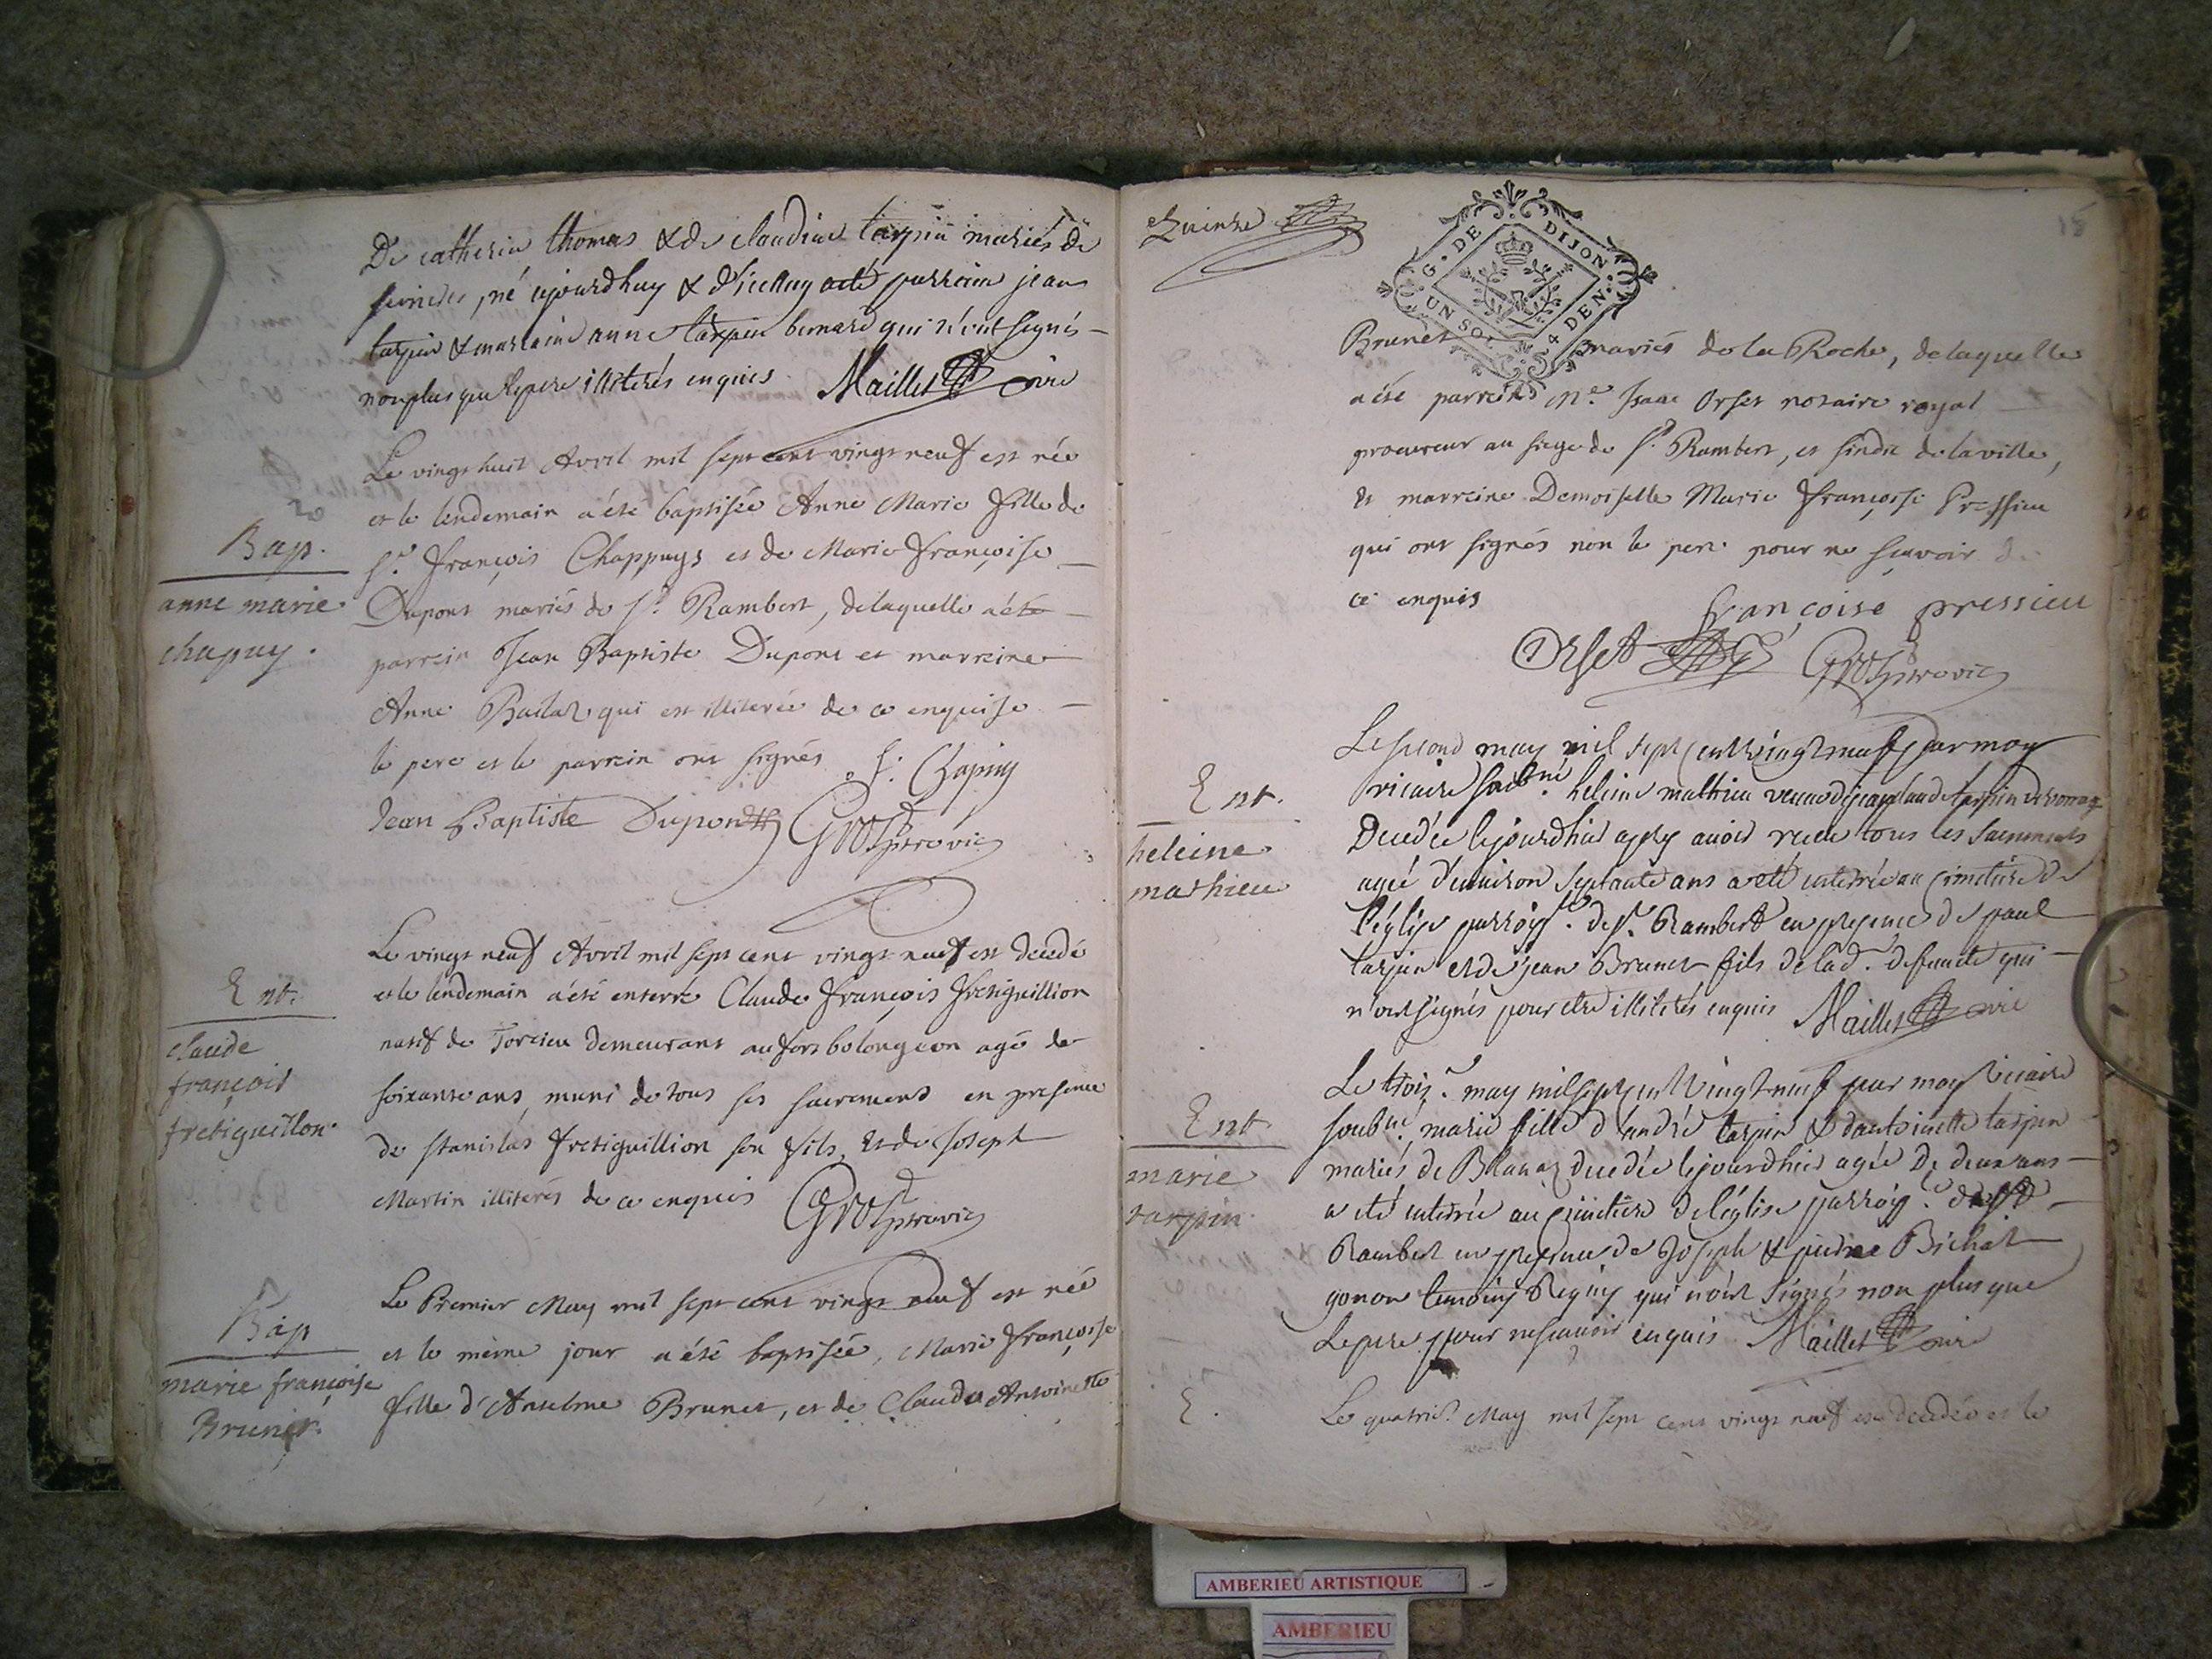 De catherin thomas & de claudine tarpin mariés de
né cejourdhuy & d'icelluy acté parrain jean
tarpin & marraine anne tarpin bernard qui n'ont signés
non plus que le pere illiterés enquis Maillet vire
Le vingt huit Avril mil sept cent vingt neuf est née
et le lendemain a été baptisée Anne Marie fille de
20
Bap.
anne marie
chapuy.
Sr. françois Chappuys et de Marie françoise
Dupont mariés de St. Rambert, de laquelle a été
parrein Jean Baptiste Dupont et marreine
Anne qui est illiterée de ce enquise
le pere et le parrein ont signés f: Chapuy
Jean Baptiste Dupont
Le vingt neuf Avril mil sept cent vingt neuf est decedé
et le lendemain a été enterré Claude françois fretiguillion
Ent.
claude
françois
fretiguillon
natif de Torcieu demeurant au agé de
soixante ans, muni de tous ses sacremens en presence
de Stanislas fretiguillion son fils, et de Joseph
Martin illiterés de ce enquis
Le Premier May mil sept cent vingt neuf est née
et le même jour a été baptisée, Marie françoise
Bap
marie françoise
Brunet.
fille d'Anselme Brunet, et de Claudu Antoinette
15
G. DE DIJON
UN SOL 4 DEN.
Brunet mariés de la Roche, de laquelle
a été parrein Me. Isaac Orset notaire royal
procureur au siege de St. Rambert, et sindic de la ville,
et marreine Demoiselle Marie françoise Pressieu
qui ont signés non le pere pour ne sçavoir de
ce enquis
françoise pressieu
Orset
Le second may mil sept cent vingt neuf par moy
vicaire soubné. heleine mathieu veuve de tarpin
Ent.
heleine
mathieu
Decedée cejourdhui apres avoir receu tous les sacrements
agée d'environ septante ans a eté enterrée au cimetiere de
l'église parroisse. de St. Rambert en presence de paul
tarpin et de jean Brunet fils de lad. defuncte qui
n'ont signés pour etre illiterés enquis Maillet vire
Le troiz.e may mil sept cent vingt neuf par moy vicaire
Ent
marie
tarpin
soubné, marie fille d'andré tarpin & dantoinette tarpin
mariés de Blanaz decedée cejourdhui agée de deux ans
a eté enterrée au cimetiere de l'église parroiss.e de St
Rambert en presence de Joseph & pierre Bichat
gonon temoins Requis qui n'ont signés non plus que
Le pere pour ne scavoir enquis Maillet vire
E.
Le quatrie. May mil sept cent vingt neuf est decedée et le
AMBERIEU ARTISTIQUE
AMBERIEU